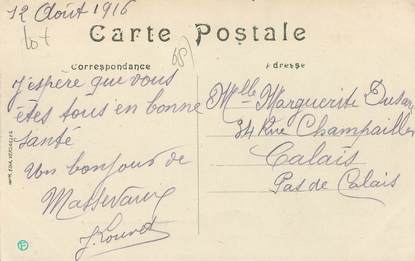 12 Août 1916
lot
68
Carte Postale
Correspondance
Adresse
j'espère que vous
êtes tous en bonne
santé
un bonjour de
Massevaux
J. Louvet
Melle Marguerite
34 Rue Champailler
Calais
Pas de Calais